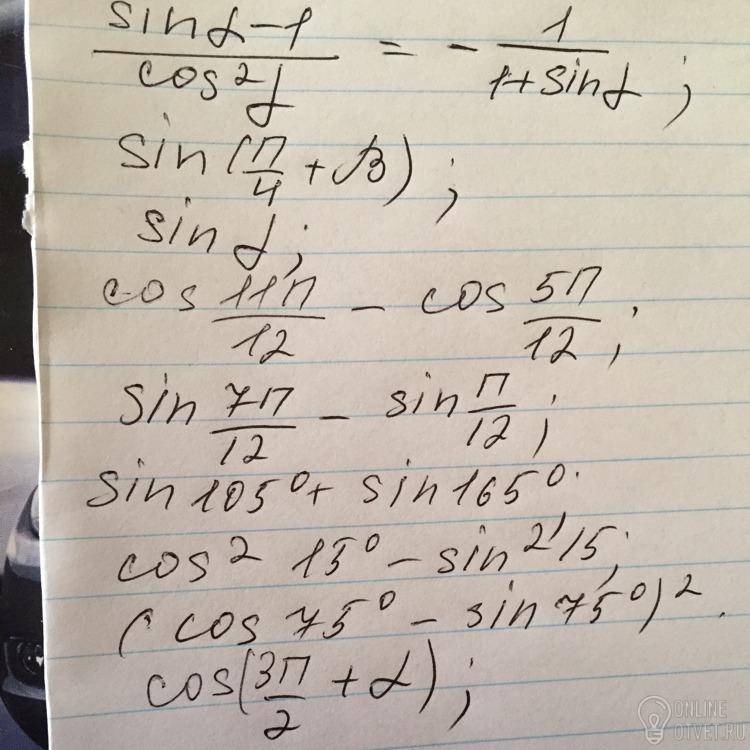 (sin α - 1) / (cos² α) = - 1 / (1 + sin α) ;
sin (π/4 + β) ;
sin α ;
cos 11π/12 - cos 5π/12 ;
sin 7π/12 - sin π/12 ;
sin 105° + sin 165° ;
cos² 15° - sin² 15 ;
(cos 75° - sin 75°)² .
cos (3π/2 + α) ;
ONLINE
OTVET.RU